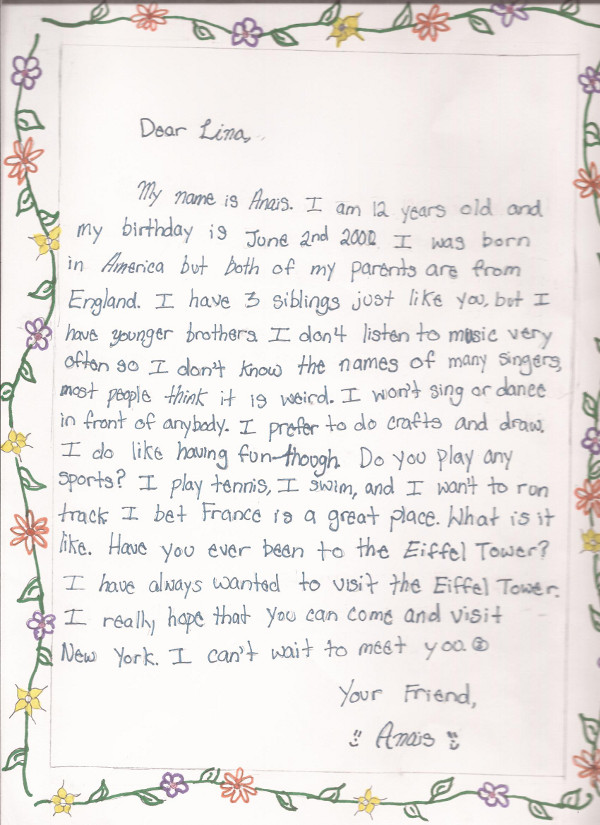 Dear Lina,
My name is Anais. I am 12 years old and
my birthday is June 2nd I was born
in America but both of my parents are from
England. I have 3 siblings just like you, but I
have younger brothers I don't listen to music very
often so I don't know the names of many singers,
most people think it is weird. I won't sing or dance
in front of anybody. I prefer to do crafts and draw.
I do like having fun though. Do you play any
sports? I play tennis, I swim, and I want to run
track I bet France is a great place. What is it
like. Have you ever been to the Eiffel Tower?
I have always wanted to visit the Eiffel Tower.
I really hope that you can come and visit
New York. I can't wait to meet you.
Your Friend,
Anais